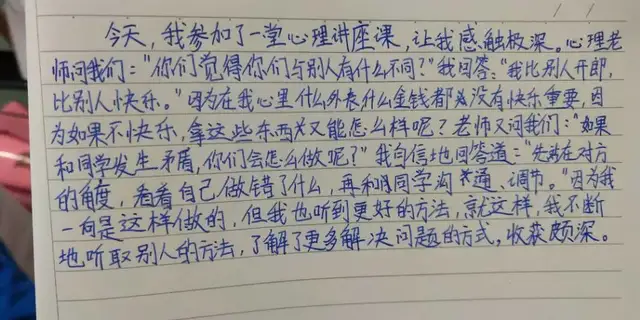 今天,我参加了一堂心理讲座课,让我感触极深。心理老
师问我们:"你们觉得你们与别人有什么不同?"我回答:"我比别人开郎,
比别人快乐。"因为在我心里什么外表什么金钱都没有快乐重要,因
为如果不快乐,拿这些东西又能怎么样呢?老师又问我们:"如果
和同学发生矛盾,你们会怎么做呢?"我自信地回答道:"先站在对方
的角度,看看自己做错了什么,再和同学沟通、调节。"因为我
一向是这样做的,但我也听到更好的方法,就这样,我不断
地听取别人的方法,了解了更多解决问题的方式,收获颇深。